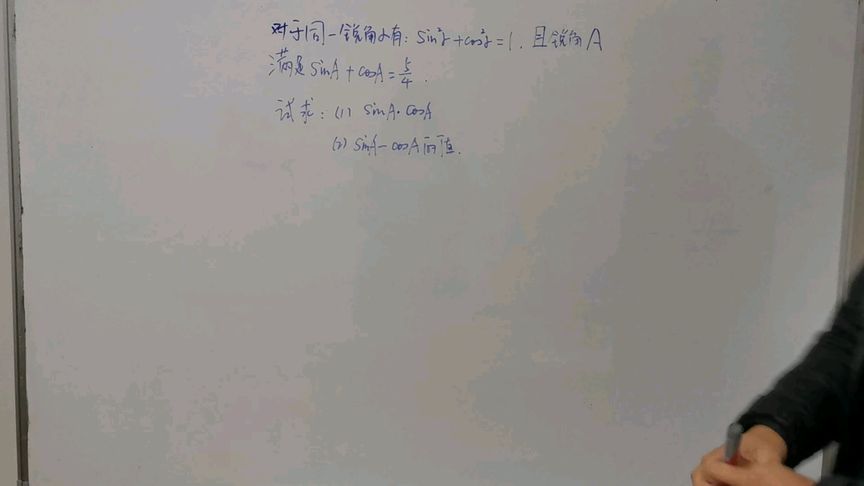 对于同一锐角α有：sin²α+cos²α=1，且锐角A
满足sinA+cosA=5/4．
试求：(1) sinA·cosA
(2) sinA-cosA的值.